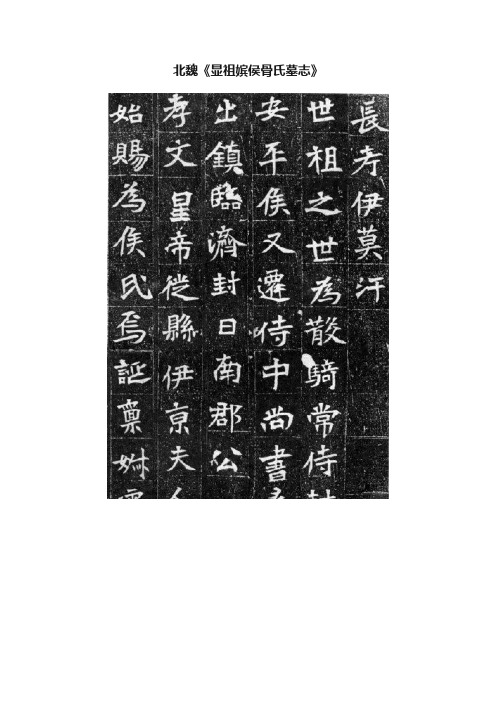 北魏《显祖嫔侯骨氏墓志》
長考伊莫汗
世祖之世為散騎常侍封
安平侯又遷侍中尚書
出鎮臨濟封日南郡公
孝文皇帝徙縣伊京夫人
始賜為侯氏焉誕稟婌靈